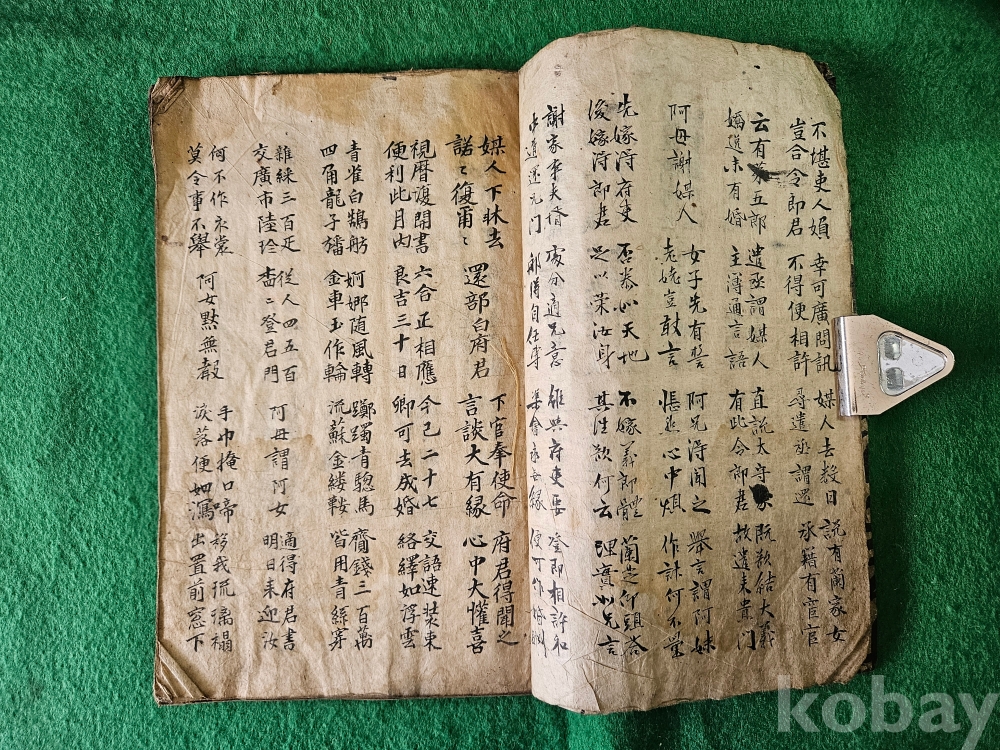 不堪吏人婦
豈合令郎君
幸可廣問訊
不得便相許
媒人去数日
尋遣丞謂還
説有蘭家女
承籍有宦官
云有第五郎
嬌逸未有婚
遣丞謂媒人
主薄通言語
直説太守家
有此令郎君
既欲結大義
故遣来貴门
阿母謝媒人
女子先有誓
老姥豈敢言
阿兄淂聞之
悵然心中煩
舉言謂阿妹
作計何不量
先嫁淂府吏
後嫁淂郎君
否泰如天地
足以荣汝身
不嫁義郎體
其往欲何云
蘭芝仰頭答
理實如兄言
謝家事夫壻
中道还兄门
處分適兄意
那得自任専
雖與府吏要
渠會永無縁
登即相許和
便可作婚姻
媒人下牀去
諾〻復爾〻
還部白府君
下官奉使命
言談大有緣
府君得聞之
心中大懽喜
視曆復開書
便利此月内
六合正相應
良吉三十日
今已二十七
卿可去成婚
交語速裝束
絡繹如浮雲
青雀白鵠舫
四角龍子旙
婀娜随風轉
金車玉作輪
躑躅青驄馬
流蘇金縷鞍
齎錢三百萬
皆用青絲穿
雜綵三百疋
交廣市陸珍
従人四五百
〻登君門
阿母謂阿女
適得府君書
明日来迎汝
何不作衣裳
莫令事不舉
阿女黙無聲
手巾掩口啼
淚落便如瀉
移我琉璃榻
出置前窓下
kobay